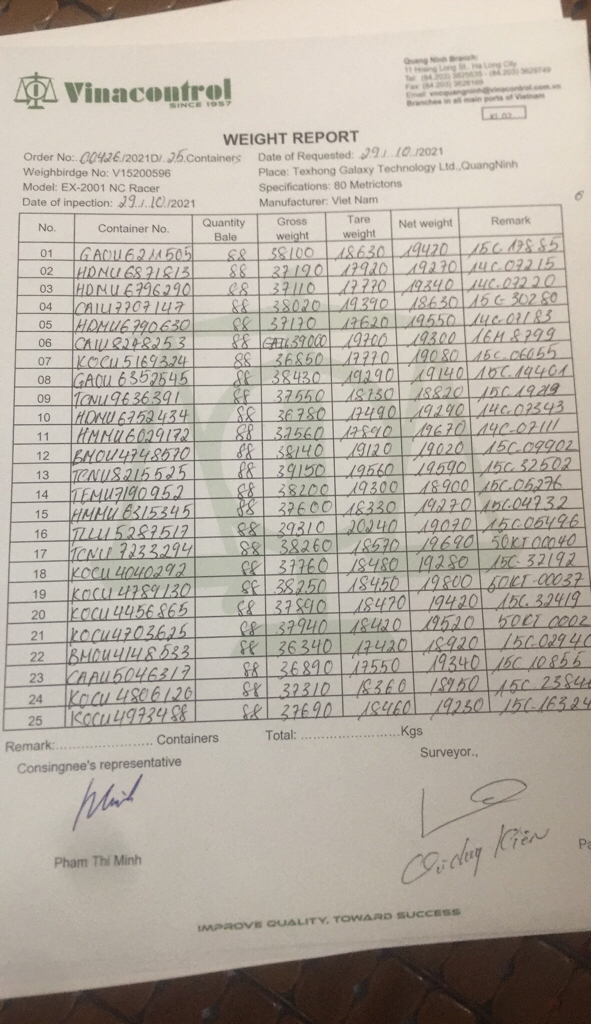 Vinacontrol
SINCE 1957
Quang Ninh Branch:
11 Hoang Long St., Ha Long City
Branches in all main ports of Vietnam
WEIGHT REPORT
Order No: 00426/2021D/ 25 Containers Date of Requested: 29 / 10 /2021
Weighbirdge No: V15200596 Place: Texhong Galaxy Technology Ltd.,QuangNinh
Model: EX-2001 NC Racer Specifications: 80 Metrictons
Date of inpection: 29 / 10 /2021 Manufacturer: Viet Nam
No. Container No. Quantity Bale Gross weight Tare weight Net weight Remark
01 GAOU6211505 88 38100 18630 19470 15C 17885
02 HDMU6871813 88 37190 17920 19270 14C.07215
03 HDMU6796290 88 37110 17770 19340 14C.07220
04 CAIU7707147 88 38020 19390 18630 15C-30280
05 HDMU6790630 88 37170 17620 19550 14C-07183
06 CAIU8248253 88 39000 19700 19300 16M 8799
07 KOCU5169324 88 36850 17770 19080 15C.06055
08 GAOU 6352545 88 38430 19290 19140 15C.14401
09 TCNU9636391 88 37550 18730 18820 15C.19219
10 HDMU6752434 88 36780 17490 19290 14C-07343
11 HMMU6029172 88 37560 17890 19670 14C-07111
12 BMOU4748570 88 38140 19120 19020 15C-09902
13 TCNU8215525 88 39150 19560 19590 15C.32502
14 TEMU7190952 88 38200 19300 18900 15C.05276
15 HMMU6315345 88 37600 18330 19270 15C04732
16 TLLU5287517 88 39310 20240 19070 15C05496
17 TCNU7233294 88 38260 18570 19690 50KT00040
18 KOCU4040292 88 37760 18480 19280 15C-32192
19 KOCU4789130 88 38250 18450 19800 50KT-00037
20 KOCU4456865 88 37890 18470 19420 15C.32419
21 KOCU4703625 88 37940 18420 19520 50KT 0002
22 BMOU4148533 88 36340 17420 18920 15C02940
23 CAAU5046317 88 36890 17550 19340 15C 10855
24 KOCU4806120 88 37310 18360 18950 15C 2384
25 KOCU4973488 88 37690 18460 19230 15C-16324
Remark:........................ Containers Total: ........................Kgs
Consingnee's representative Surveyor.,
Minh
Pham Thi Minh
IMPROVE QUALITY, TOWARD SUCCESS